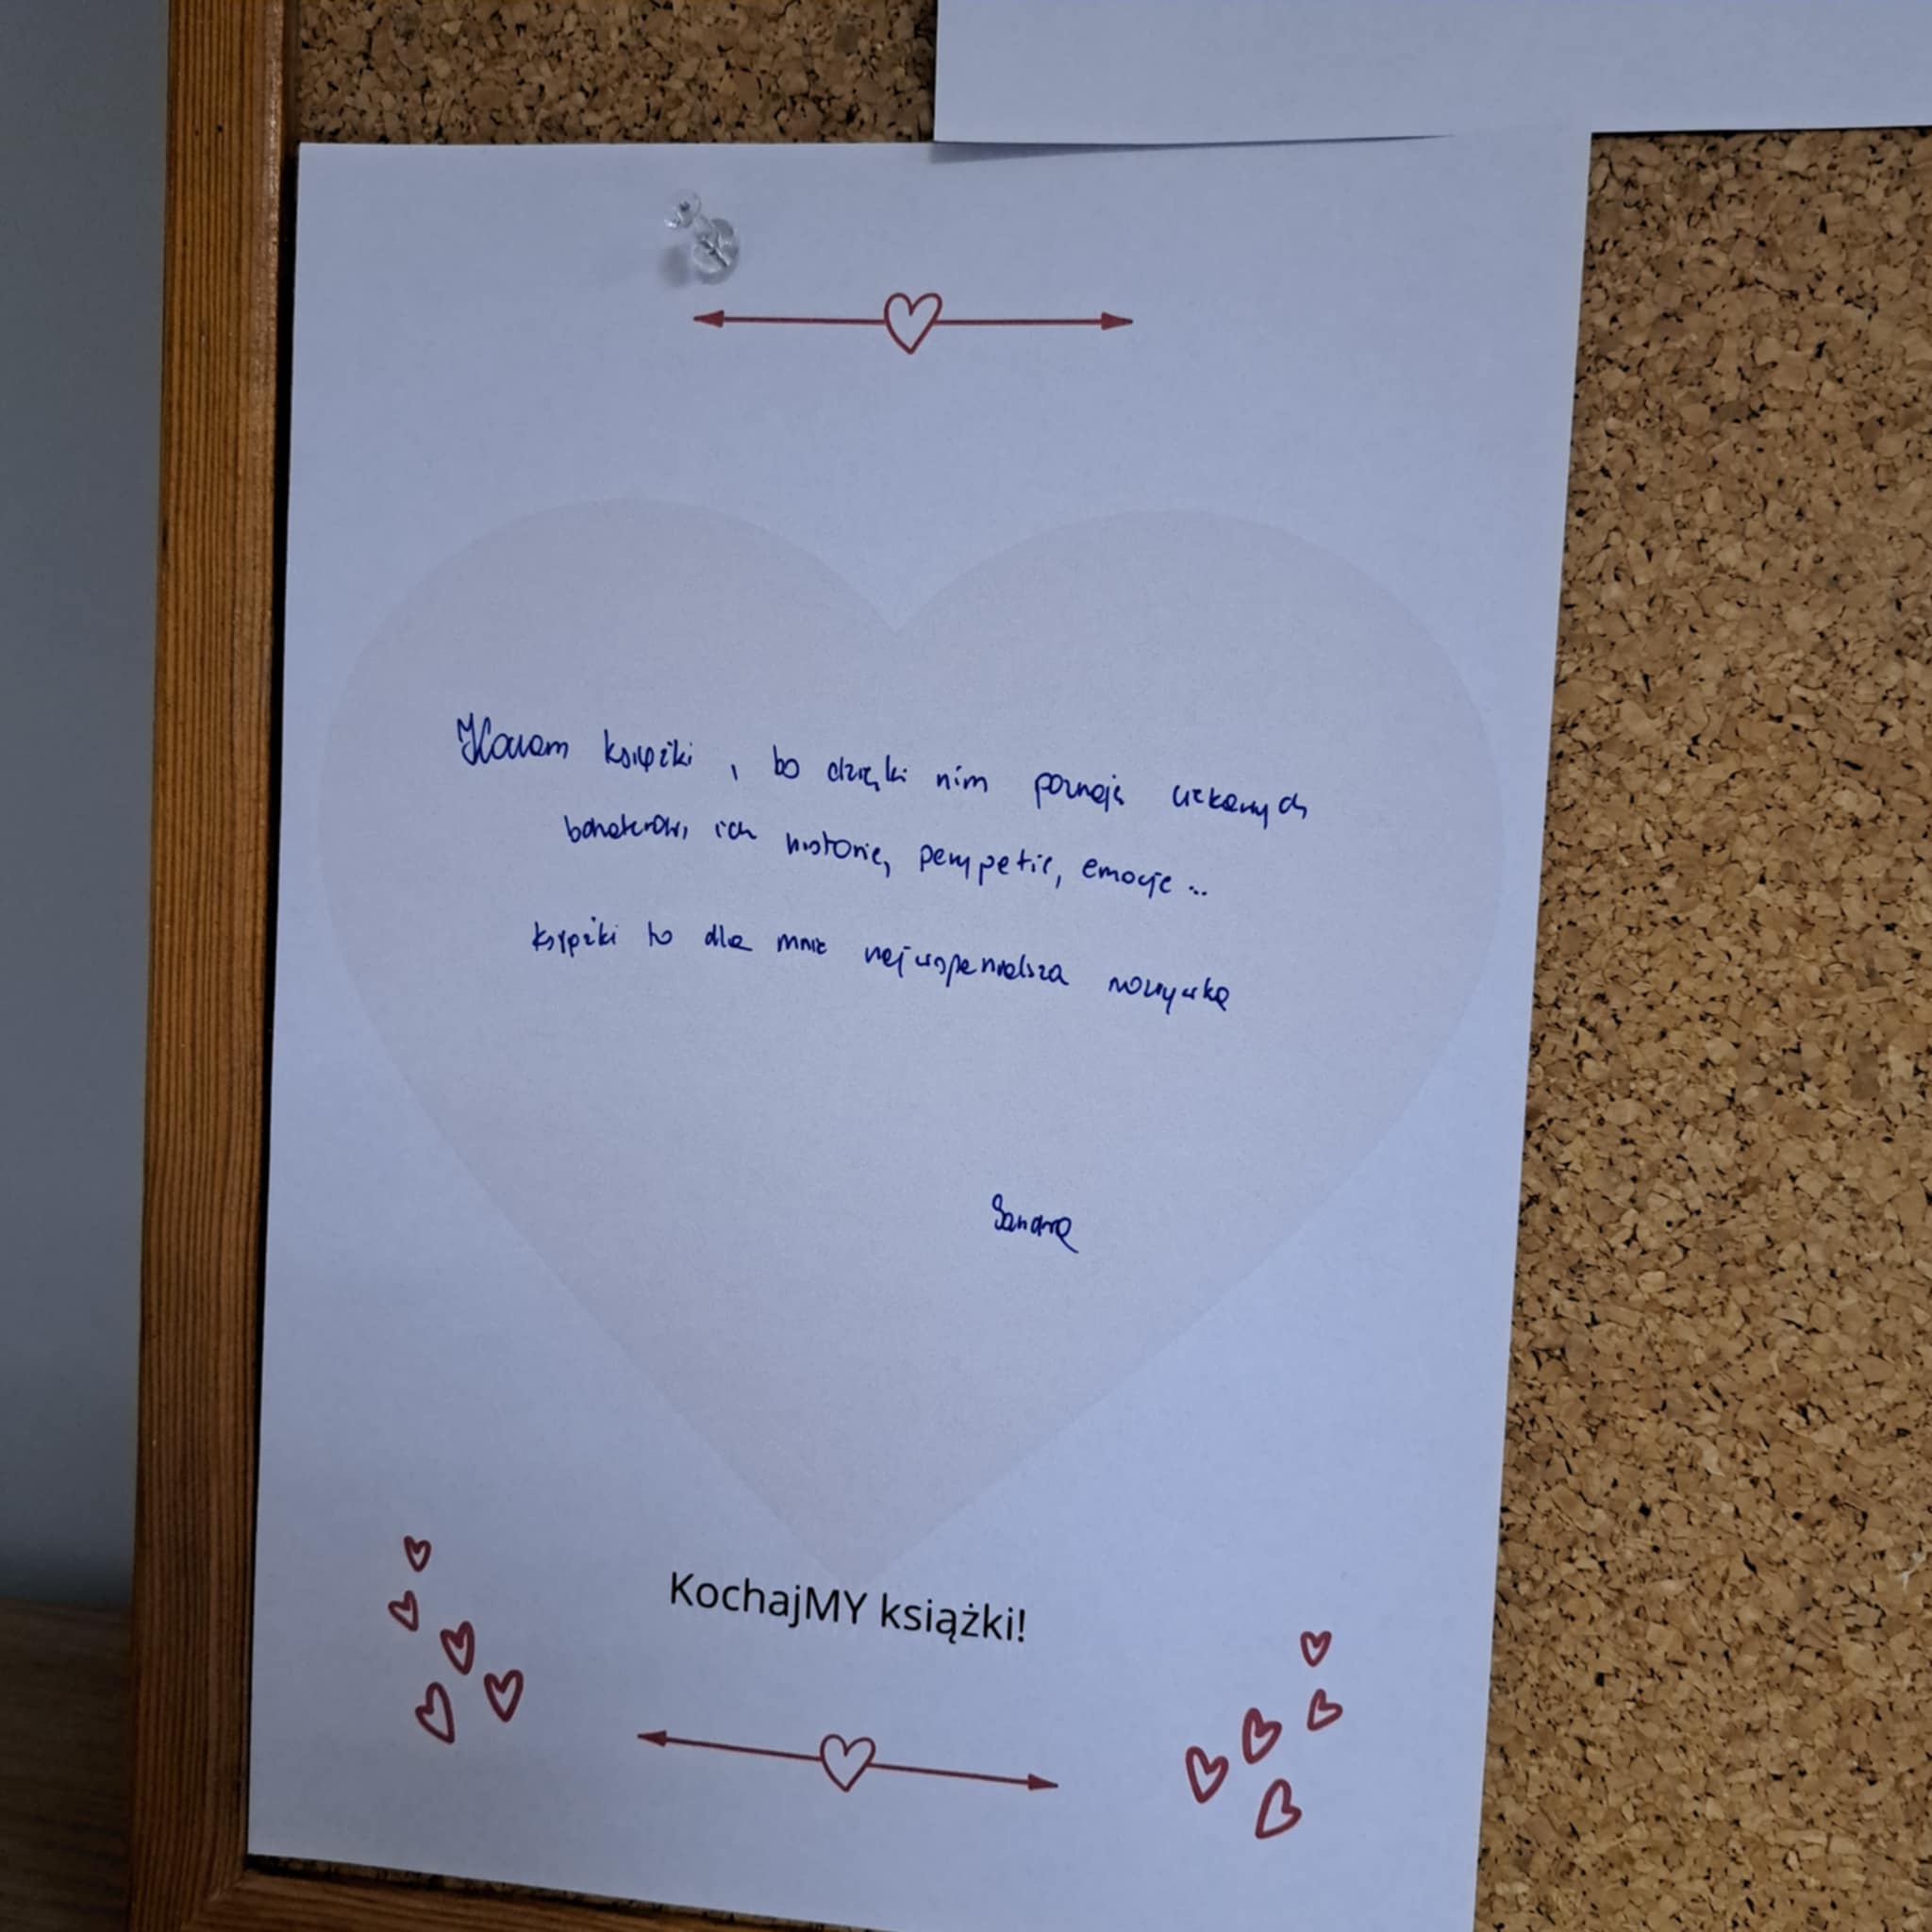 Kocham książki, bo dzięki nim poznaję ciekawych
bohaterów, ich historię, perypetie, emocje...
książki to dla mnie najwspanialsza rozrywka
Sandra
KochajMY książki!